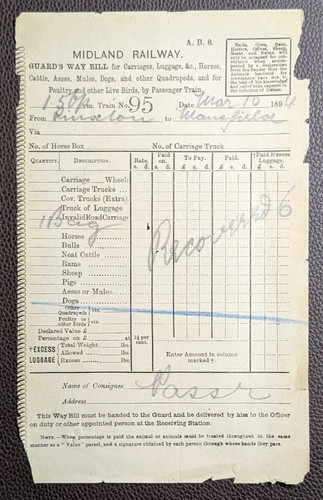 A. B. 8.
MIDLAND RAILWAY.
GUARD'S WAY BILL for Carriages, Luggage, &c., Horses,
Cattle, Asses, Mules, Dogs, and other Quadrupeds, and for
Poultry and other Live Birds, by Passenger Train.
Bulls, Cows, Oxen,
Heifers, Calves, Sheep,
Goats, and Swine will
only be accepted for conveyance when accompanied
by a declaration
from the Sender that the
Animals tendered for
conveyance have not to
the best of his knowledge
and belief been exposed to
the infection of disease.
Train No. 95 Date Mar 10 1894
From To Mansfield
Via
No. of Horse Box No. of Carriage Truck
QUANTITY. DESCRIPTION. Rate. Paid on. To Pay. Paid. †Paid Excess Luggage.
s. d. s. d. £ s. d. £ s. d. £ s. d.
Carriage Wheel
Carriage Trucks
Cov. Trucks (Extra)
Truck of Luggage
Invalid Road Carriage
1 Bag
Recovered 6
Horses
Bulls
Neat Cattle
Rams
Sheep
Pigs
Asses or Mules
Dogs
Other Quadrupeds viz.
Poultry or other Birds viz.
Declared Value £
Percentage on £ at 1¼ per cent.
†EXCESS LUGGAGE
Total Weight lbs
Allowed lbs
Excess lbs
Enter Amount in column
marked †
Name of Consignee Passr
Address
This Way Bill must be handed to the Guard and be delivered by him to the Officer
on duty or other appointed person at the Receiving Station.
NOTE.—When percentage is paid the animal or animals must be treated throughout in the same
manner as a "Value" parcel, and a signature obtained by each person through whose hands they pass.